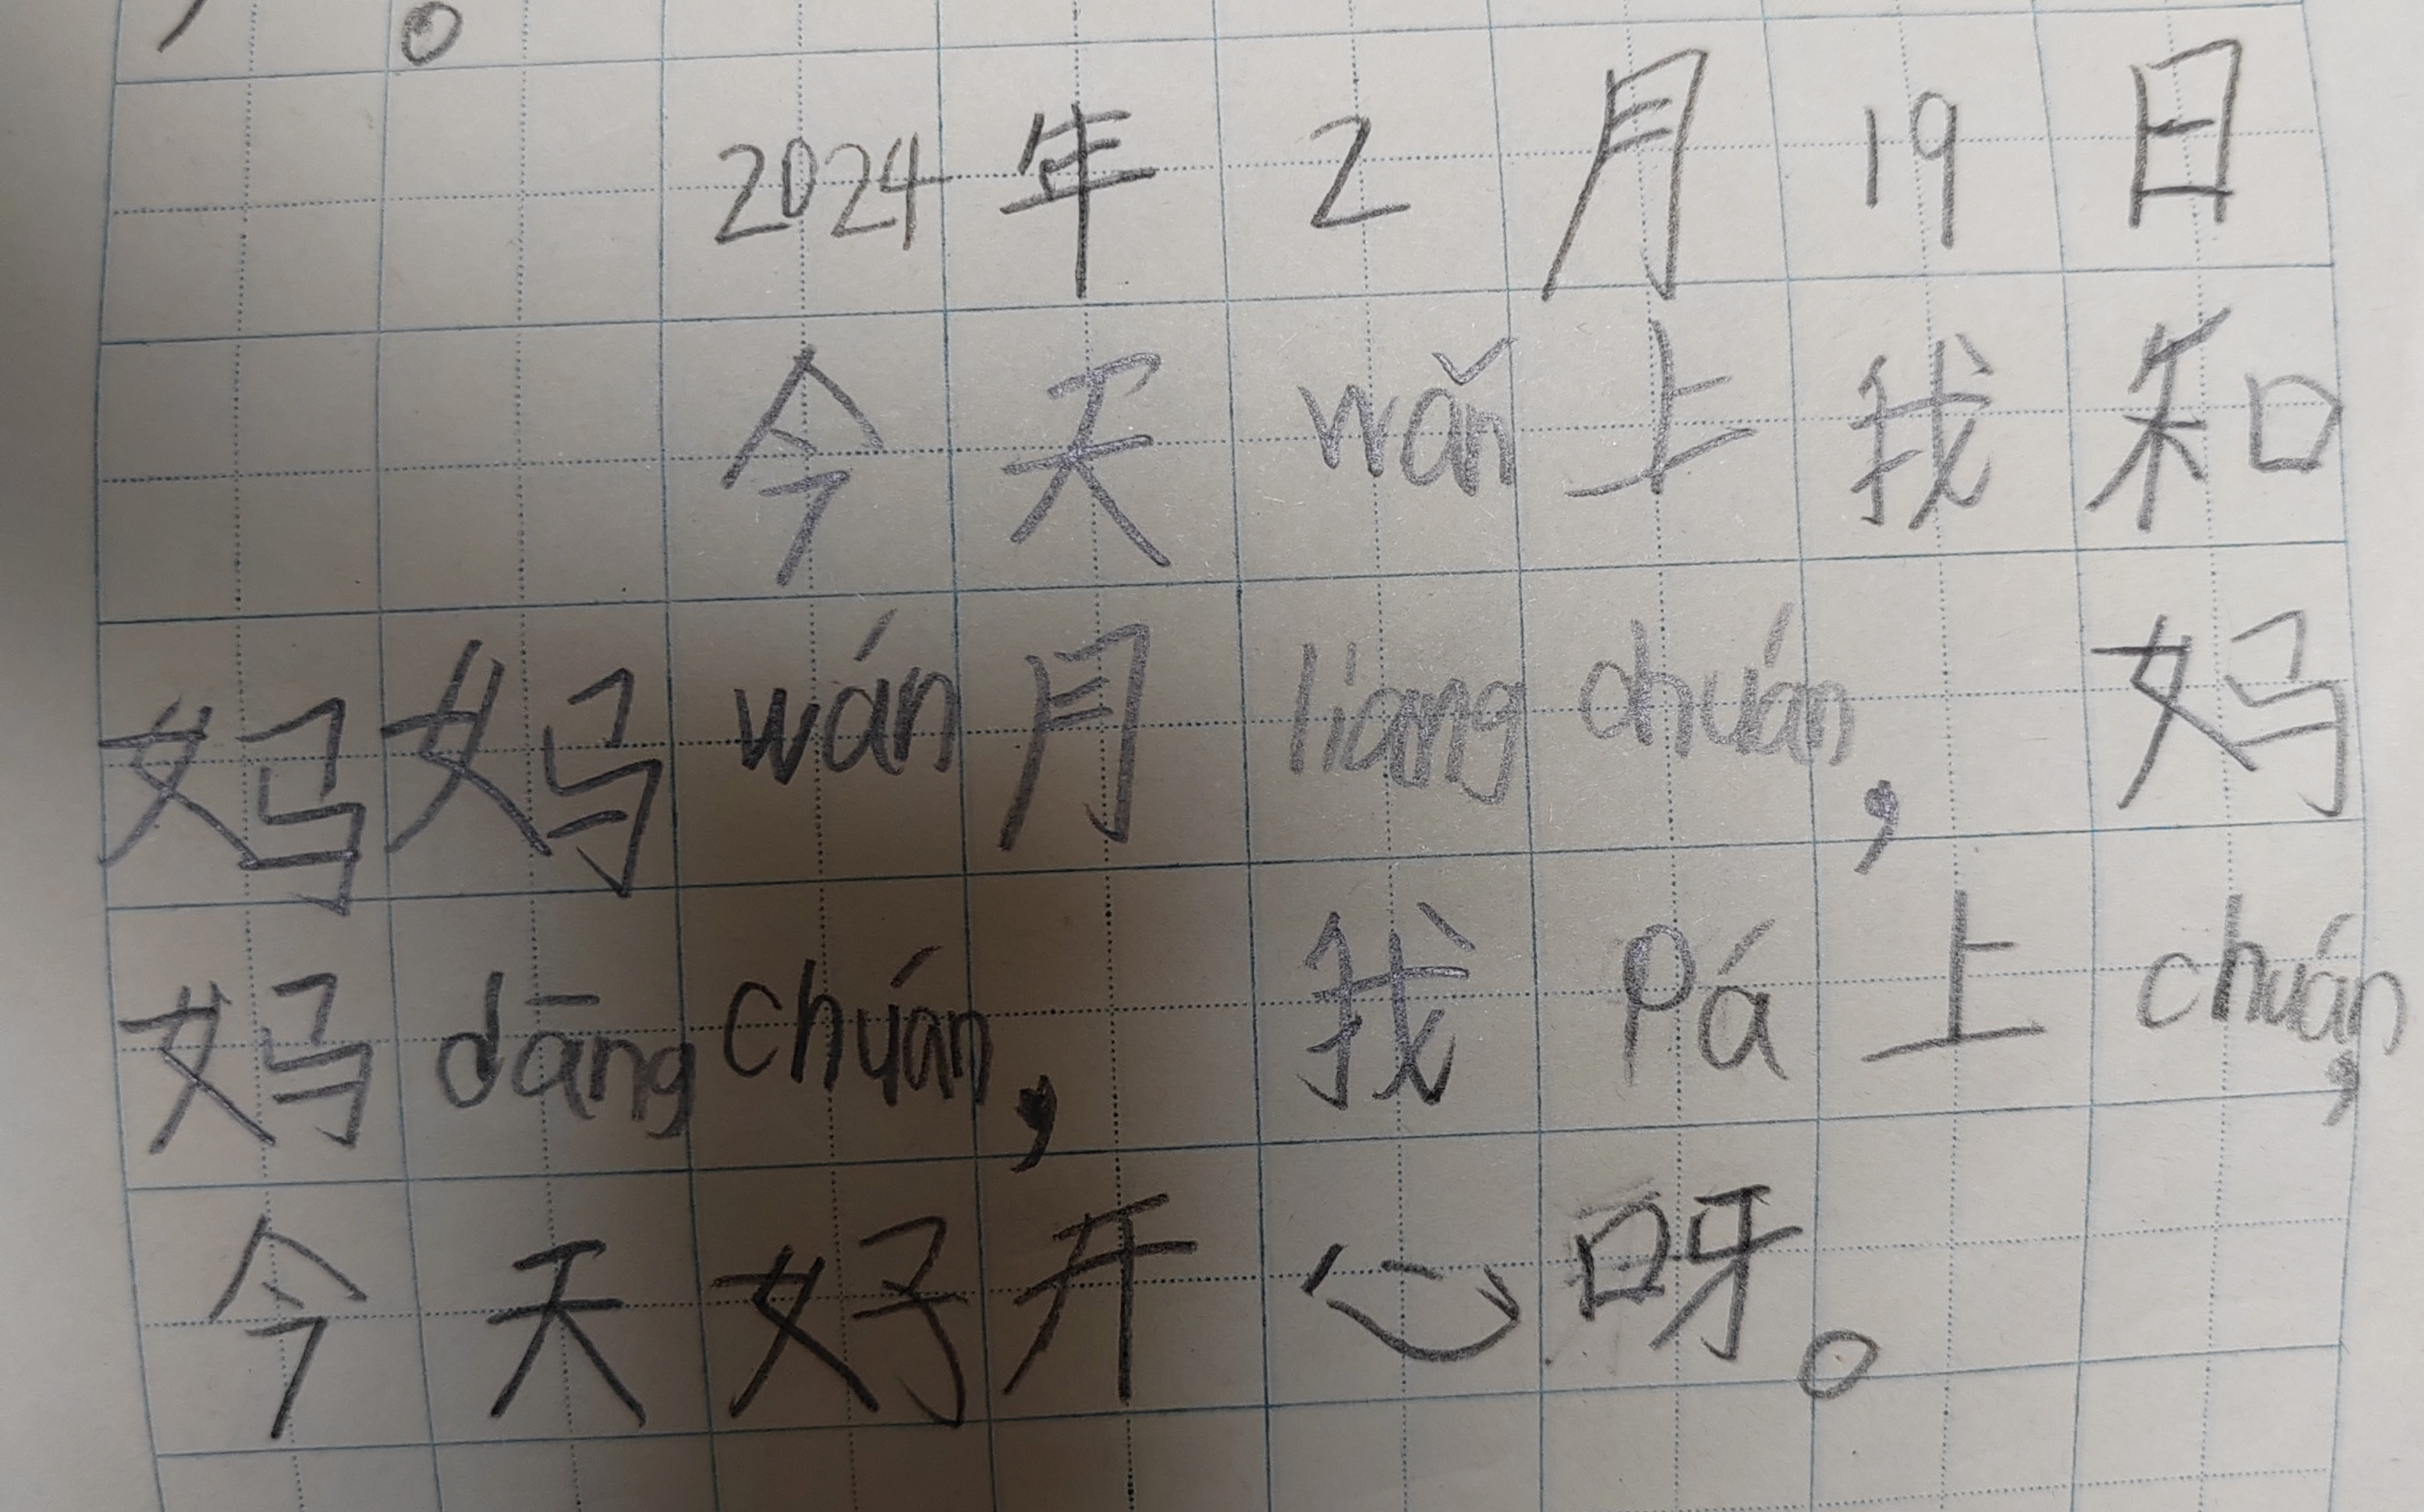 。
2024年2月19日
今天wǎn上我和
妈妈wán月liangchuán，妈
妈dāngchuán，我Pá上chuán，
今天好开心呀。